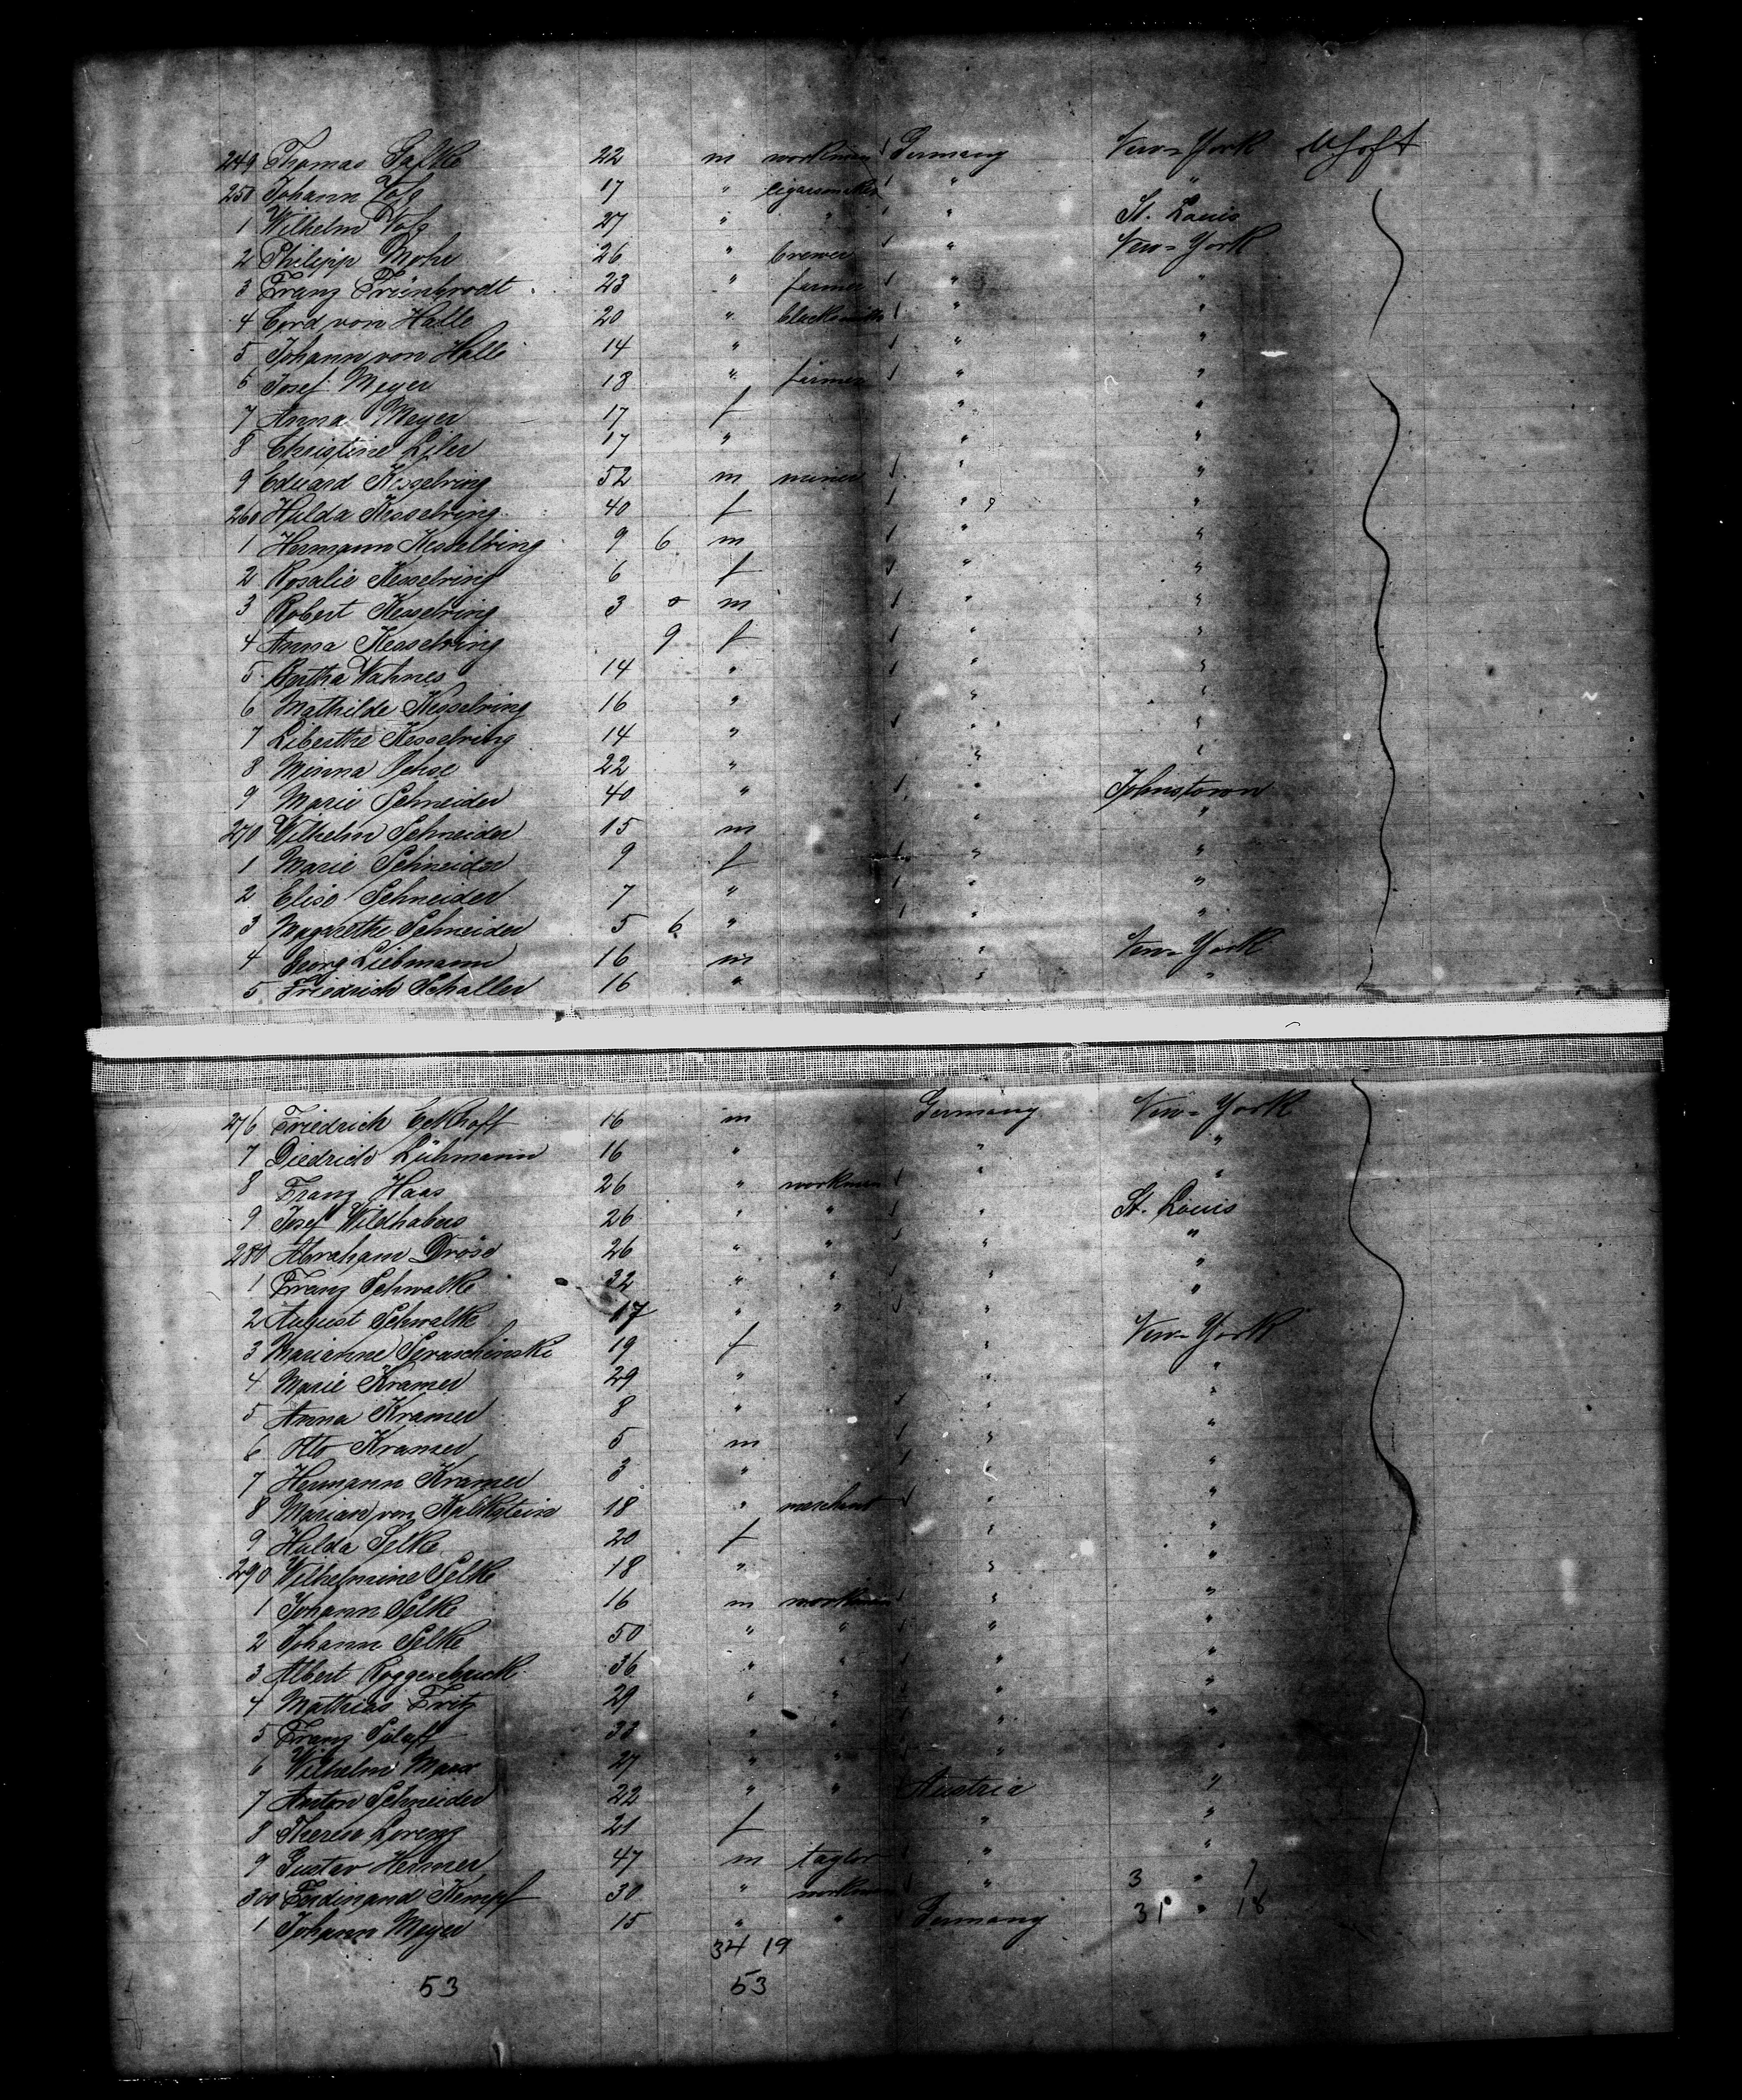 249 Thomas Safke 22 m workman Germany New-York
250 Johann Volz 17 " cigarmaker " "
1 Wilhelm Volz 27 " " " St. Louis
2 Philipp Mohr 26 " brewer " New-York
3 Franz Trünbrodt 23 " farmer " "
4 Cord von Halle 20 " blacksmith " "
5 Johann von Halle 14 " " "
6 Josef Meyer 18 " farmer " "
7 Anna Meyer 17 f " "
8 Christine Liler 17 " " "
9 Eduard Kesselring 52 m miner " "
260 Hulda Kesselring 40 f " "
1 Hermann Kesselring 9 6 m " "
2 Rosalie Kesselring 6 f " "
3 Robert Kesselring 3 m " "
4 Anna Kesselring 9 f " "
5 Bertha Wahnes 14 " " "
6 Mathilde Kesselring 16 " " "
7 Liberthe Kesselring 14 " " "
8 Minna Ochse 22 " " "
9 Marie Schneider 40 " " Johnstown
270 Wilhelm Schneider 15 m " "
1 Marie Schneider 9 f " "
2 Elise Schneider 7 " " "
3 Magarethe Schneider 5 6 " " "
4 Georg Liebmann 16 m " New-York
5 Friedrich Schaller 16 " " "
276 Friedrich Eckhoff 16 m Germany New-York
7 Diedrich Lühmann 16 " " "
8 Franz Haas 26 " workman " "
9 Josef Wildhabers 26 " " " St. Louis
280 Abraham Dröse 26 " " " "
1 Franz Schwalke 32 " " " "
2 August Schwalke 17 " " " "
3 Marianne 19 f " New-York
4 Marie Kramer 29 " " "
5 Anna Kramer 8 " " "
6 Otto Kramer 5 m " "
7 Hermann Kramer 3 " " "
8 Marian von Kalkstein 18 " merchant " "
9 Hulda Selke 20 f " "
290 Wilhelmine Selke 18 " " "
1 Johann Selke 16 m workman " "
2 Johann Selke 50 " " " "
3 Albert Roggenbuck 36 " " " "
4 Mathias Fritz 29 " " " "
5 Franz 33 " " " "
6 Wilhelm Marx 27 " " " "
7 Anton Schneider 22 " " Austria "
8 Therese Lorenz 21 f " "
9 Gustav Heimer 47 m taylor " "
300 Ferdinand Kempf 30 " workman " 3 " 1
1 Johann Meyer 15 " " Germany 31 " 18
34 19
53 53